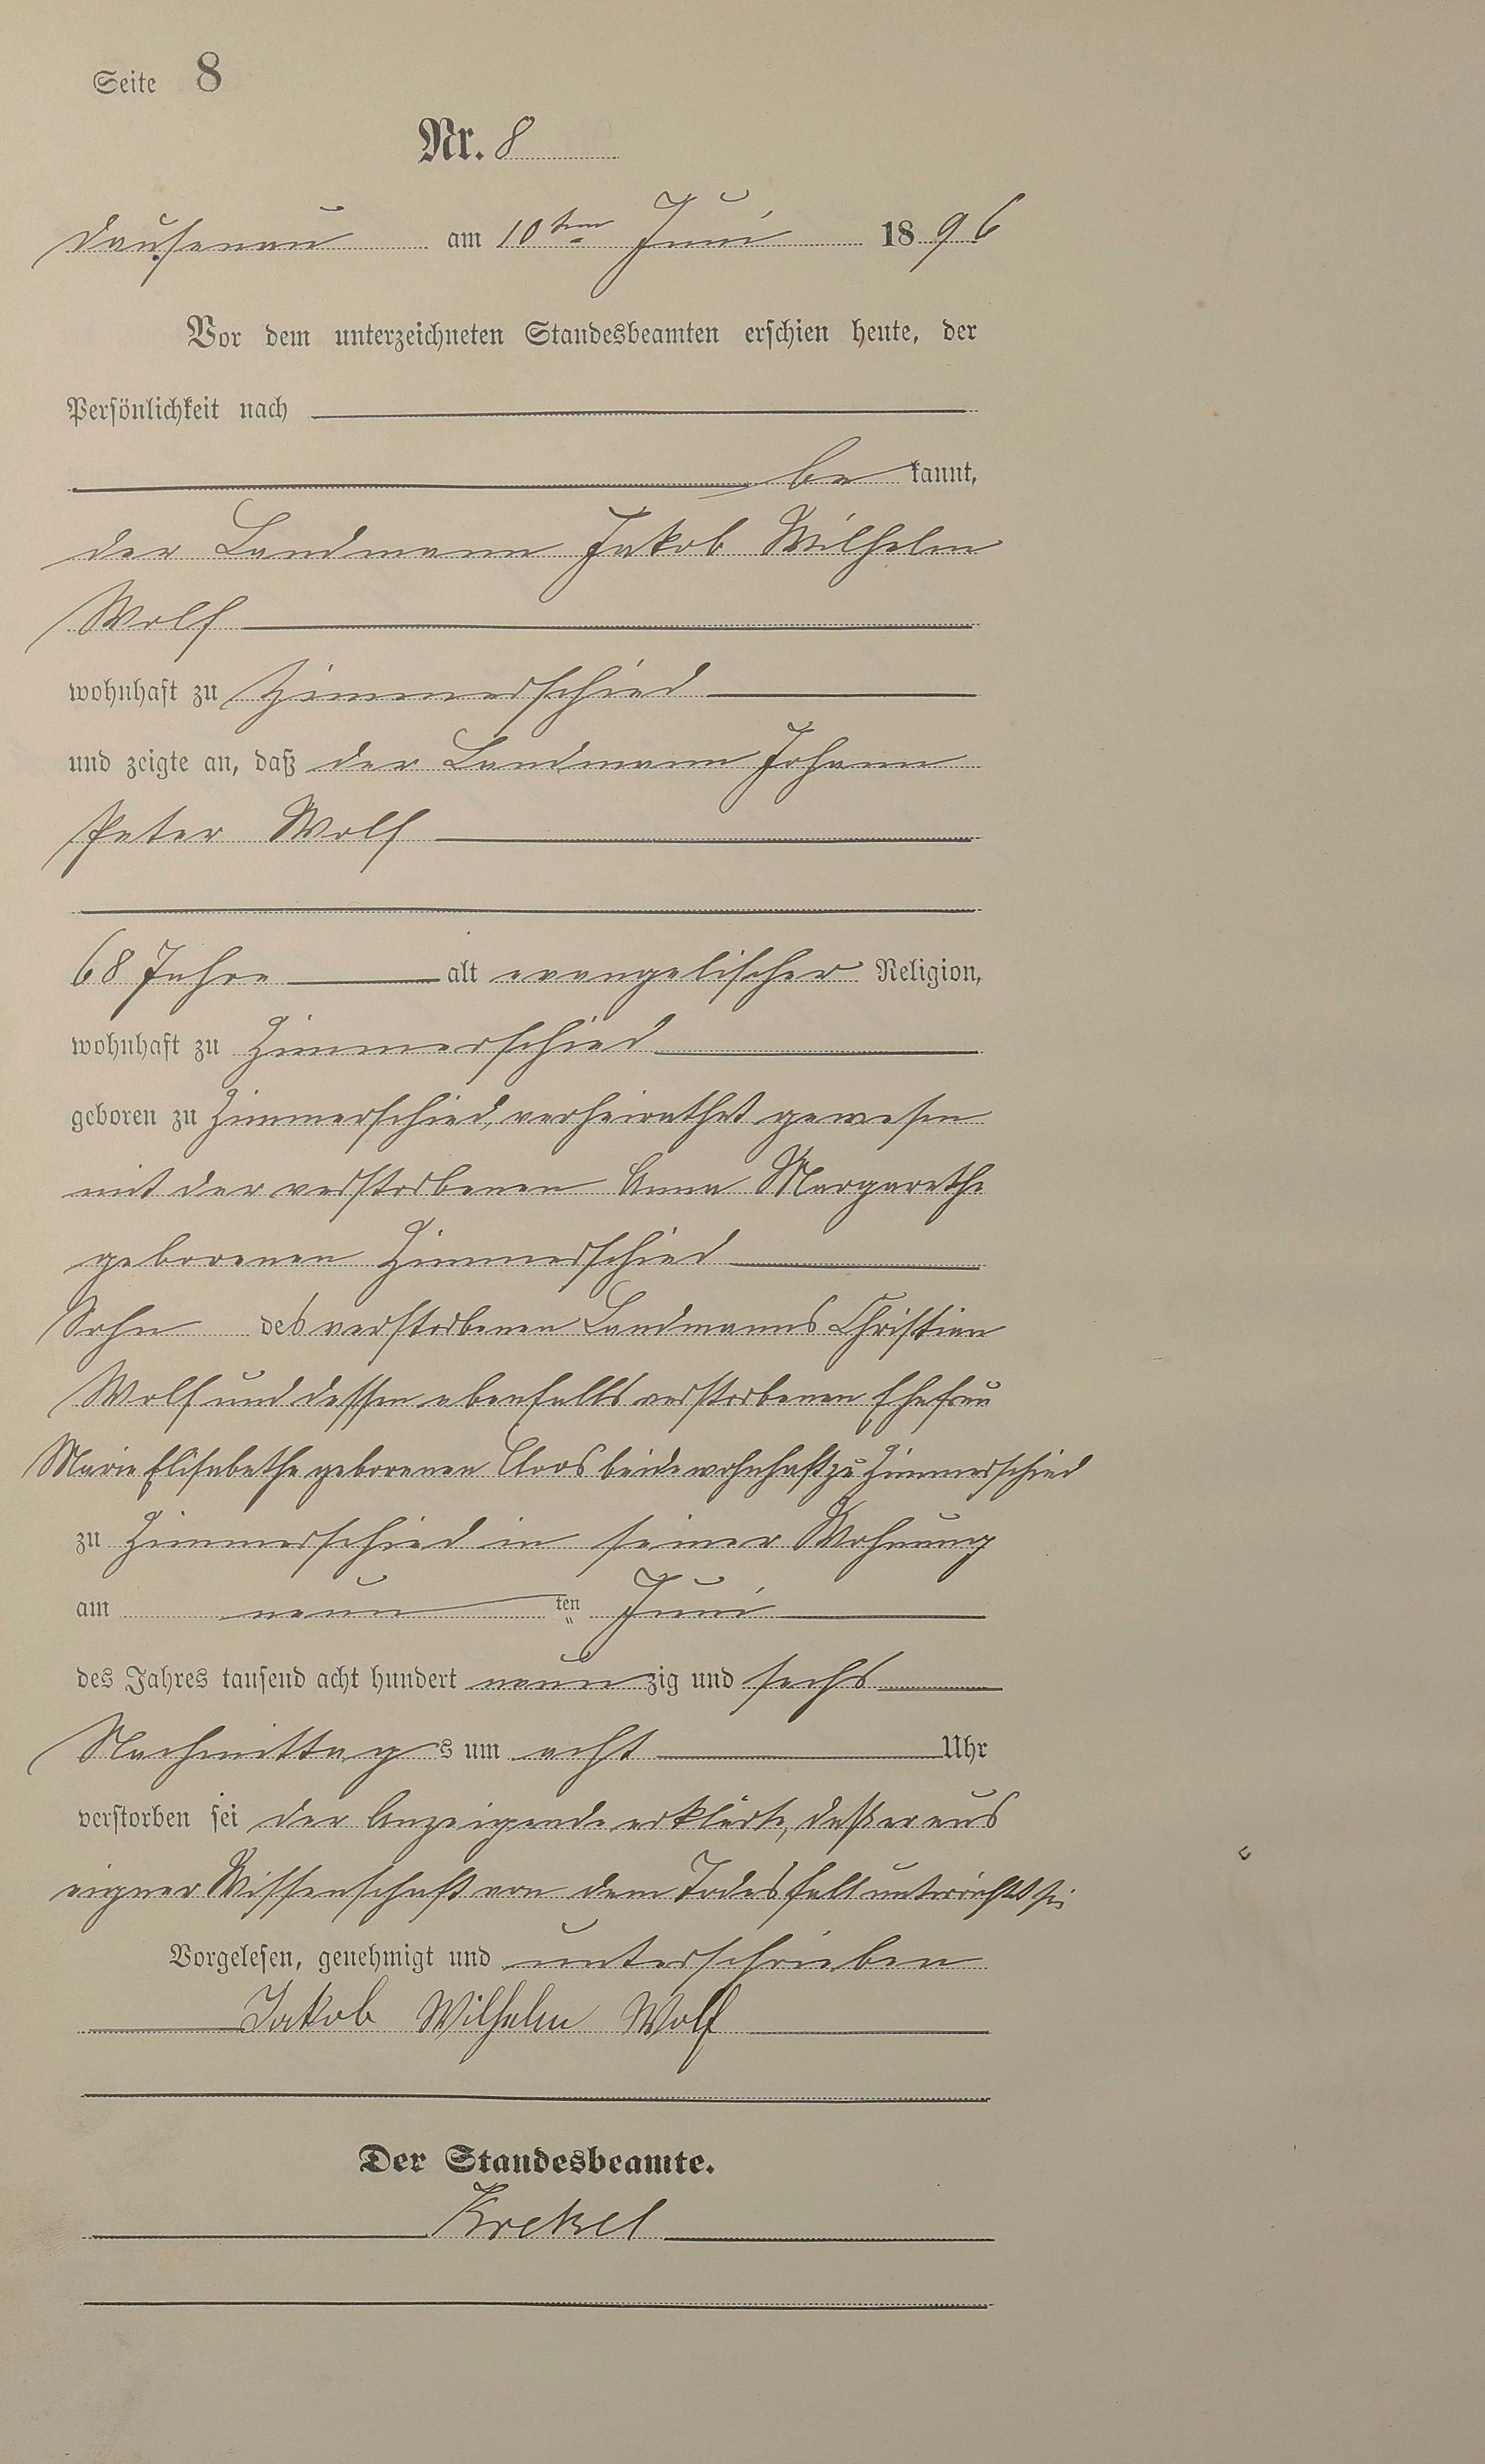 Seite 8
Nr. 8
Dausenau am 10ten Juni 1896
Vor dem unterzeichneten Standesbeamten erschien heute, der
Persönlichkeit nach
bekannt,
der Landmann Jakob Wilhelm
Wolf
wohnhaft zu Zimmerschied
und zeigte an, daß der Landmann Johann
Peter Wolf
68 Jahre alt evangelischer Religion,
wohnhaft zu Zimmerschied
geboren zu Zimmerschied, verheirathet gewesen
mit der verstorbenen Anna Margarethe
geborenen Zimmerschied
Sohn des verstorbenen Landmanns Christian
Wolf und dessen ebenfalls verstorbenen Ehefrau
Marie Elisabethe geborenen Cloos beide wohnhaft zu Zimmerschied
zu Zimmerschied in seiner Wohnung
am neun ten Juni
des Jahres tausend acht hundert neunzig und sechs
Nachmittags um acht Uhr
verstorben sei der Anzeigende erklärte, daß er aus
eigner Wissenschaft von dem Todesfall unterrichtet sei
Vorgelesen, genehmigt und unterschrieben
Jakob Wilhelm Wolf
Der Standesbeamte.
Krekel